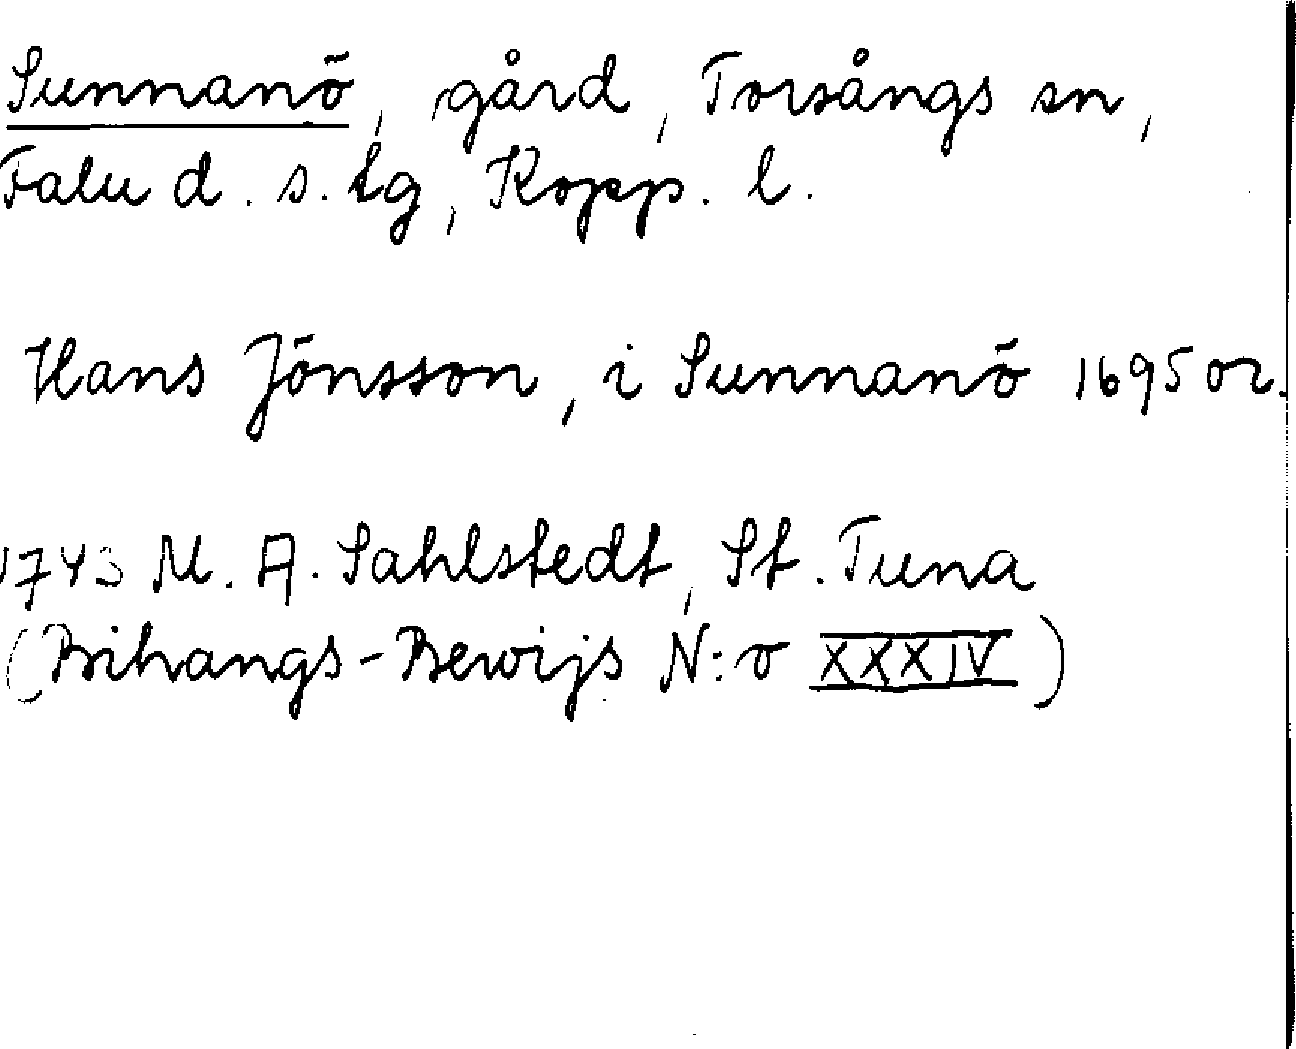 Sunnanö, gård, Torsångs sn,
Falu d. s. tg, Kopp. l.
Hans Jönsson, i Sunnanö 1695 or.
1743 M. A. Sahlstedt, St. Tuna
(Bihangs-Bewijs N:o XXXIV)